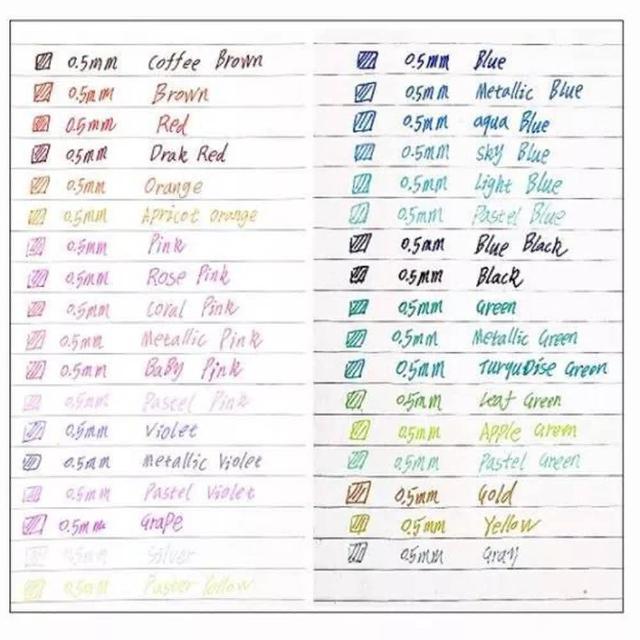 0.5mm Coffee Brown
0.5mm Brown
0.5mm Red
0.5mm Drak Red
0.5mm Orange
0.5mm Apricot orange
0.5mm Pink
0.5mm Rose Pink
0.5mm Coral Pink
0.5mm Metallic Pink
0.5mm BaBy Pink
0.5mm Pastel Pink
0.5mm Violet
0.5mm Metallic Violet
0.5mm Pastel Violet
0.5mm Grape
0.5mm Silver
0.5mm Paster Yollow
0.5mm Blue
0.5mm Metallic Blue
0.5mm aqua Blue
0.5mm sky Blue
0.5mm Light Blue
0.5mm Pastel Blue
0.5mm Blue Black
0.5mm Black
0.5mm Green
0.5mm Metallic Green
0.5mm TurquDise Green
0.5mm Leaf Green
0.5mm Apple Green
0.5mm Pastel Green
0.5mm Gold
0.5mm Yellow
0.5mm Gray